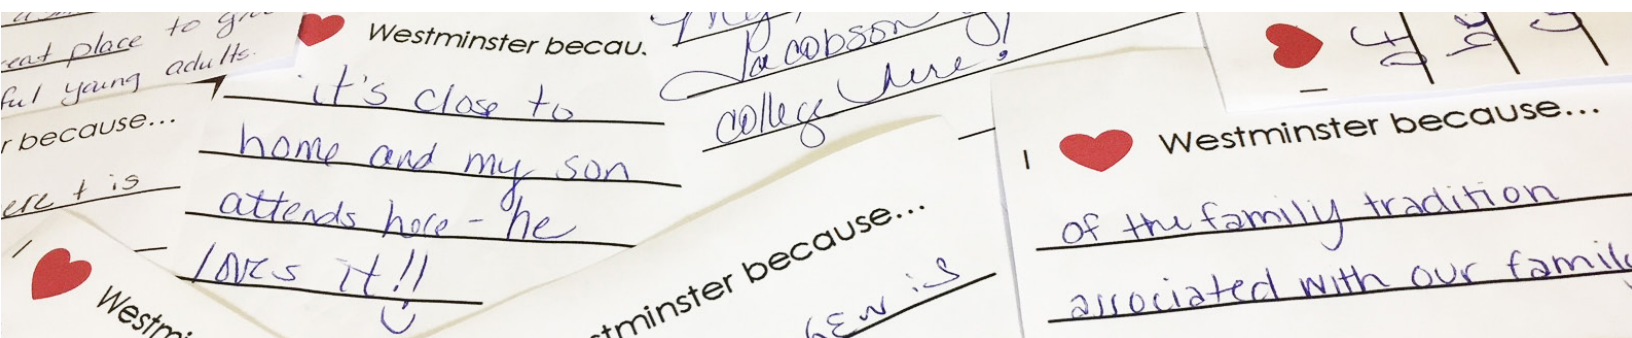 eat place to
ful young adults.
r because...
ere + is
Westminster becau.
it's close to
home and my son
attends here - he
loves it!!
Jacobson
college here!
Westmi
stminster because...
is
I Westminster because...
of the family tradition
associated with our family